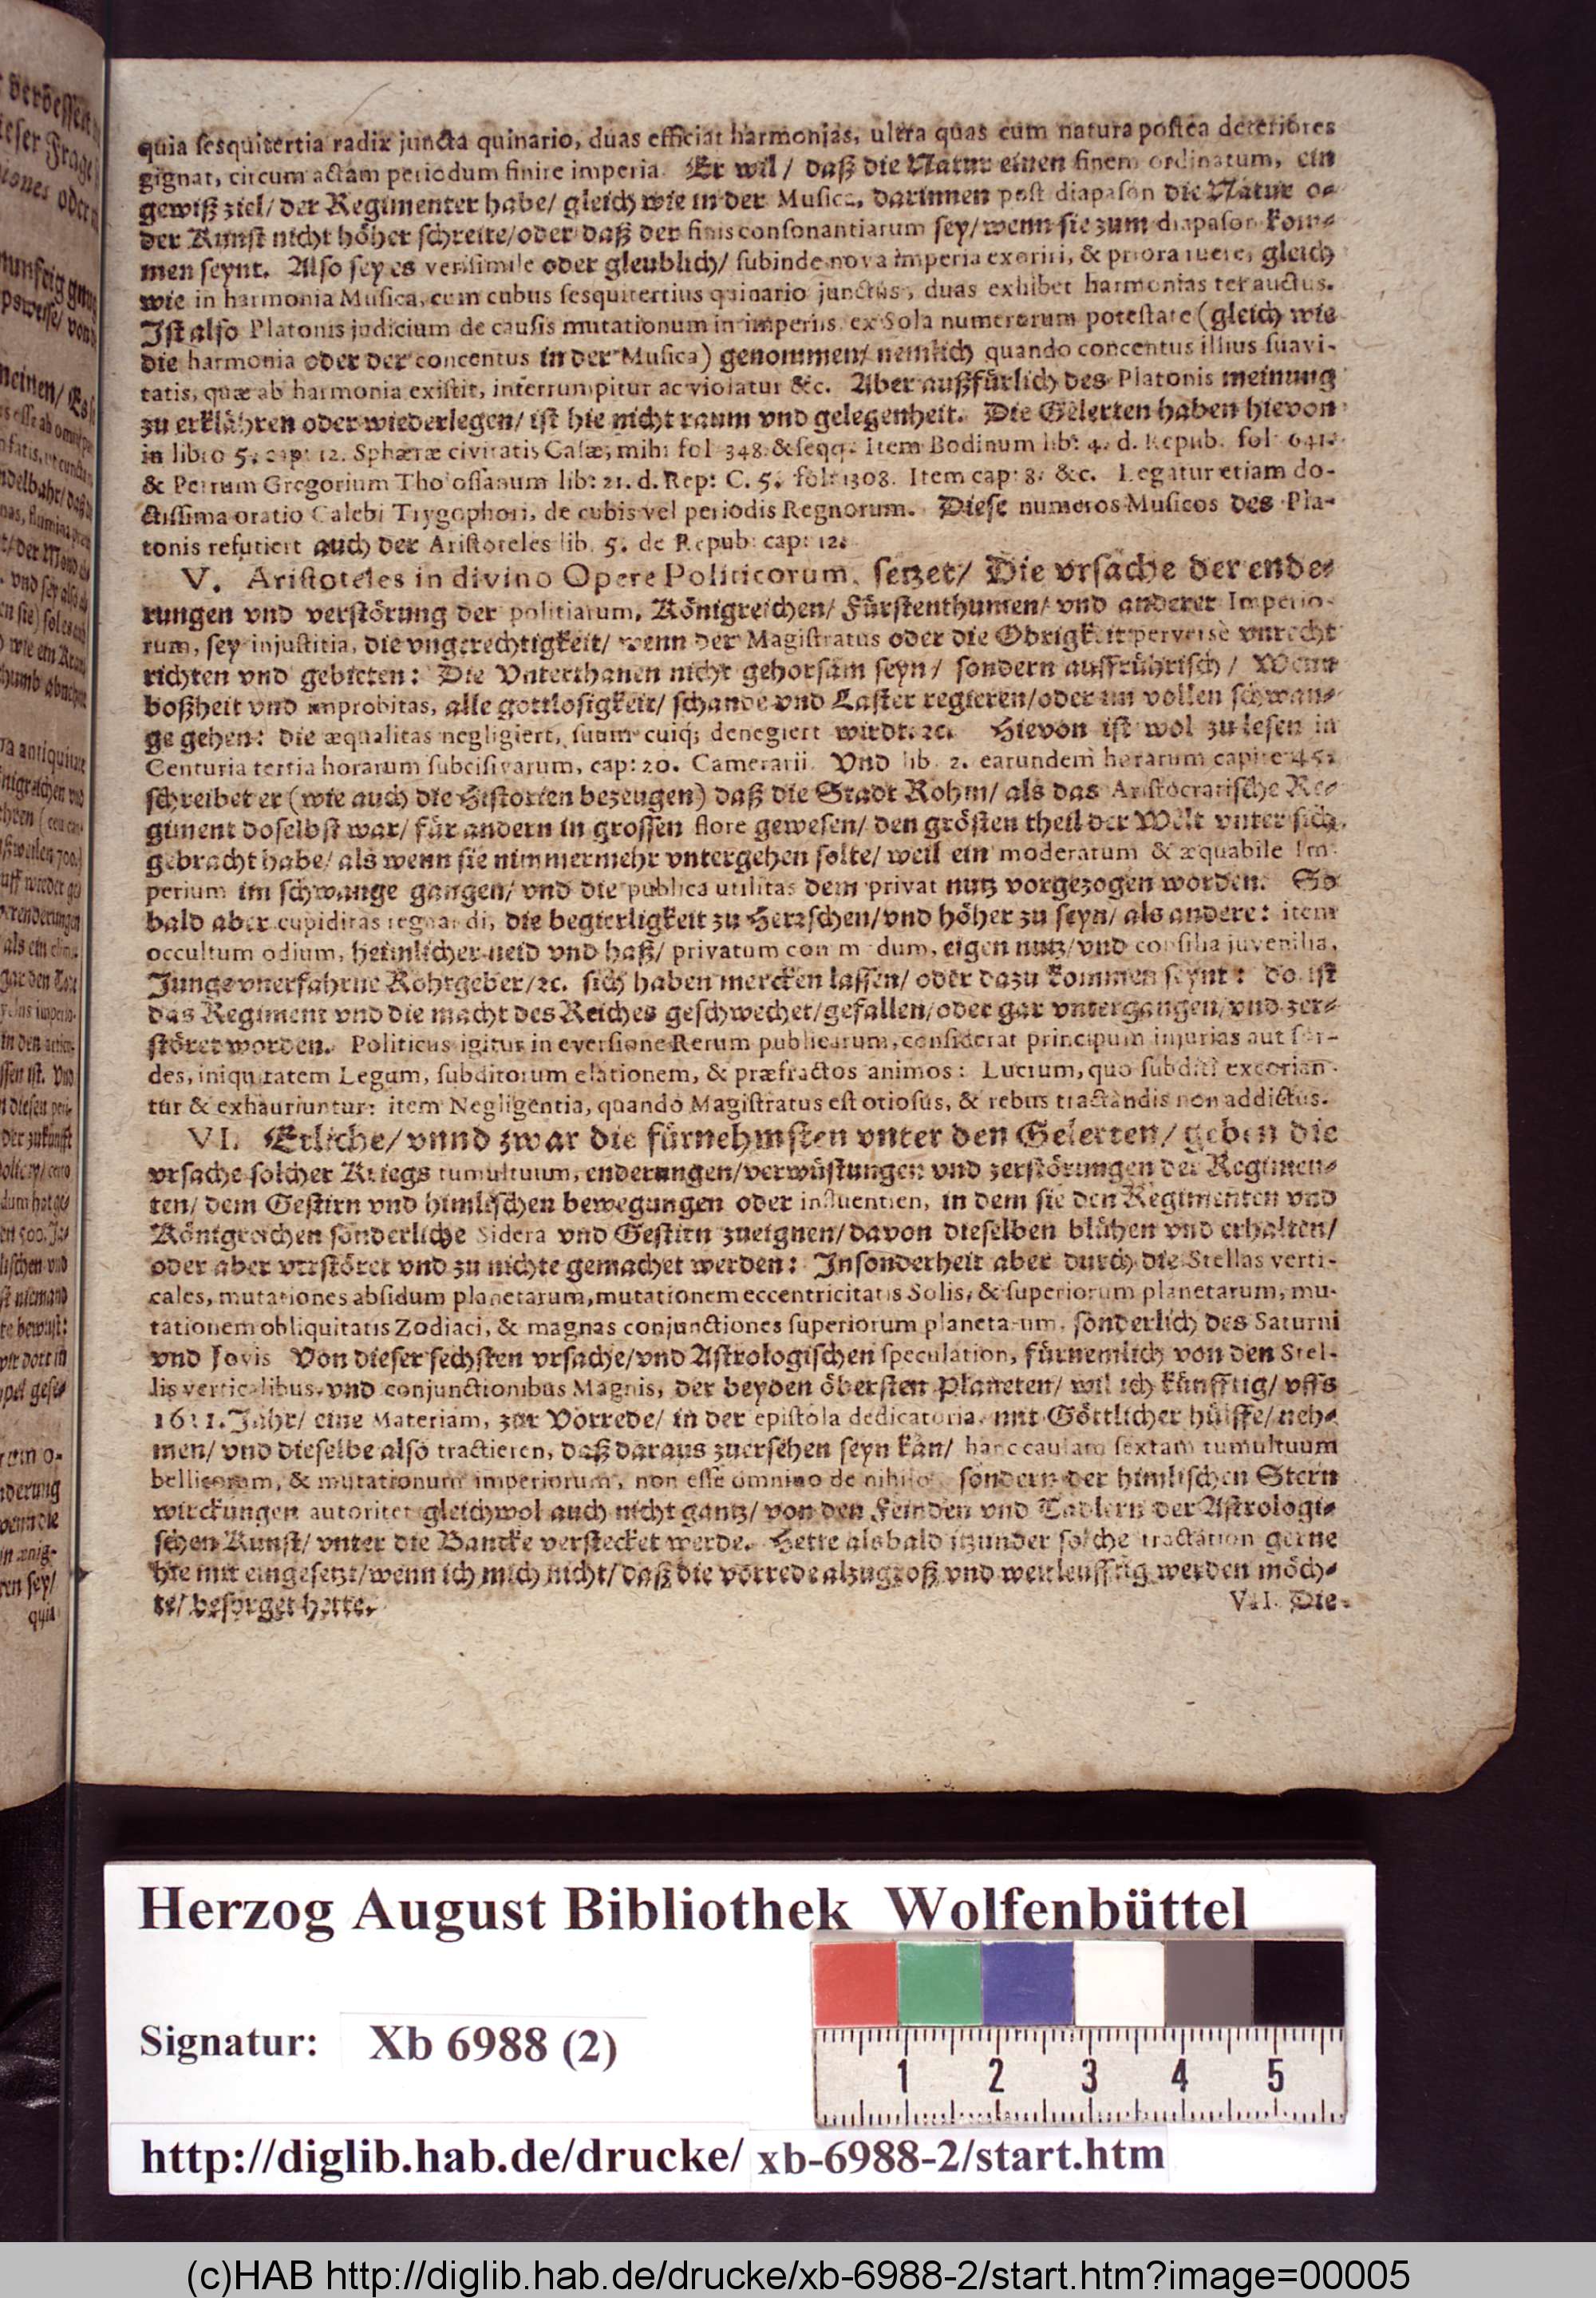 quia sesquitertia radix juncta quinario, duas efficiat harmonias, ultra quas cum natura postea deteriores
gignat, circum actam periodum finire imperia. Er wil / daß die Natur einen finem ordinatum, ein
gewiß ziel/ der Regimenter habe/ gleich wie in der Musica, darinnen post diapason die Natur o-
der Kunst nicht höher schreite/oder daß der finis consonantiarum sey/wenn sie zum diapason kom-
men seynt. Also sey es verisimile oder gleublich/ subinde nova imperia exoriri, & priora ruere, gleich
wie in harmonia Musica, cum cubus sesquitertius quinario junctus, duas exhibet harmonias ter auctus.
Ist also Platonis judicium de causis mutationum in imperiis, ex Sola numerorum potestate (gleich wie
die harmonia oder der concentus in der Musica) genommen/ nemlich quando concentus illius suavi-
tatis, quæ ab harmonia existit, interrumpitur ac violatur &c. Aber außfürlich des Platonis meinung
zu erklähren oder wiederlegen/ ist hie nicht raum vnd gelegenheit. Die Gelerten haben hievon
in libro 5. cap: 12. Sphæræ civitatis Casæ, mihi fol 348. & seqq. Item Bodinum lib: 4. d. Repub. fol 641.
& Petrum Gregorium Tholossanum lib: 21. d. Rep: C. 5. fol: 1308. Item cap: 8. &c. Legatur etiam do-
ctissima oratio Calebi Trygophori, de cubis vel periodis Regnorum. Diese numeros Musicos des Pla-
tonis refutiert auch der Aristoteles lib. 5. de Repub: cap: 12.
V. Aristoteles in divino Opere Politicorum, setzet/ Die vrsache der ende-
rungen vnd verstörung der politiarum, Königreichen/ Fürstenthumen/ vnd anderer Imperio-
rum, sey injustitia, die vngerechtigkeit/ wenn der Magistratus oder die Obrigkeit perversè vnrecht
richten vnd gebieten: Die Vnterthanen nicht gehorsam seyn/ sondern auffrührisch/ Wenn
boßheit vnd improbitas, alle gottlosigkeit/ schande vnd Laster regieren/oder im vollen schwan-
ge gehen: die æqualitas negligiert, suum cuiq; denegiert wirdt. ꝛc. Hievon ist wol zu lesen in
Centuria tertia horarum subcisivarum, cap: 20. Camerarii. Vnd lib. 2. earundem horarum capite 45.
schreibet er (wie auch die Historien bezeugen) daß die Stadt Rohm/ als das Aristocratische Re-
giment doselbst war/ für andern in grossen flore gewesen/ den grösten theil der Welt vnter sich
gebracht habe/ als wenn sie nimmermehr vntergehen solte/ weil ein moderatum & æquabile Im-
perium im schwange gangen/ vnd die publica utilitas dem privat nutz vorgezogen worden. So
bald aber cupiditas regnandi, die begierligkeit zu Herrschen/vnd höher zu seyn/ als andere: item
occultum odium, heimlicher neid vnd haß/ privatum commodum, eigen nutz/vnd consilia juvenilia,
Junge vnerfahrne Rohtgeber/ꝛc. sich haben mercken lassen/ oder dazu kommen seynt: do ist
das Regiment vnd die macht des Reiches geschwechet/gefallen/oder gar vntergangen/vnd zer-
störet worden. Politicus igitur in eversione Rerum publicarum, considerat principum injurias aut sor-
des, iniquitatem Legum, subditorum elationem, & præfractos animos: Lucrum, quo subditi excorian-
tur & exhauriuntur: item Negligentia, quando Magistratus est otiosus, & rebus tractandis non addictus.
VI. Etliche/ vnnd zwar die fürnehmsten vnter den Gelerten/ geben die
vrsache solcher Kriegs tumultuum, enderungen/verwüstungen vnd zerstörungen der Regimen-
ten/ dem Gestirn vnd himlischen bewegungen oder influentien, in dem sie den Regimenten vnd
Königreichen sonderliche Sidera vnd Gestirn zueignen/davon dieselben blühen vnd erhalten/
oder aber verstöret vnd zu nichte gemachet werden: Insonderheit aber durch die Stellas verti-
cales, mutationes absidum planetarum, mutationem eccentricitatis Solis, & superiorum planetarum, mu-
tationem obliquitatis Zodiaci, & magnas conjunctiones superiorum planetarum, sonderlich des Saturni
vnd Jovis Von dieser sechsten vrsache/vnd Astrologischen speculation, fürnemlich von den Stel-
lis verticalibus, vnd conjunctionibus Magnis, der beyden öbersten Planeten/ wil ich künfftig/ vffs
1611. Jahr/ eine Materiam, zur Vorrede/ in der epistola dedicatoria, mit Göttlicher hülffe/ neh-
men/ vnd dieselbe also tractieren, daß daraus zuersehen seyn kan/ hanc causam sextam tumultuum
bellicorum, & mutationum imperiorum, non esse omnino de nihilo, sondern der himlischen Stern
wirckungen autoritet gleichwol auch nicht gantz/ von den Feinden vnd Tadlern der Astrologi-
schen Kunst/ vnter die Bancke verstecket werde. Hette alsbald itzunder solche tractation gerne
hie mit eingesetzt/wenn ich mich nicht/daß die vorrede alzugroß vnd weitleufftig werden möch-
te/ besorget hette.
VII. Die-
Herzog August Bibliothek Wolfenbüttel
Signatur: Xb 6988 (2)
1 2 3 4 5
http://diglib.hab.de/drucke/ xb-6988-2/start.htm
(c)HAB http://diglib.hab.de/drucke/xb-6988-2/start.htm?image=00005